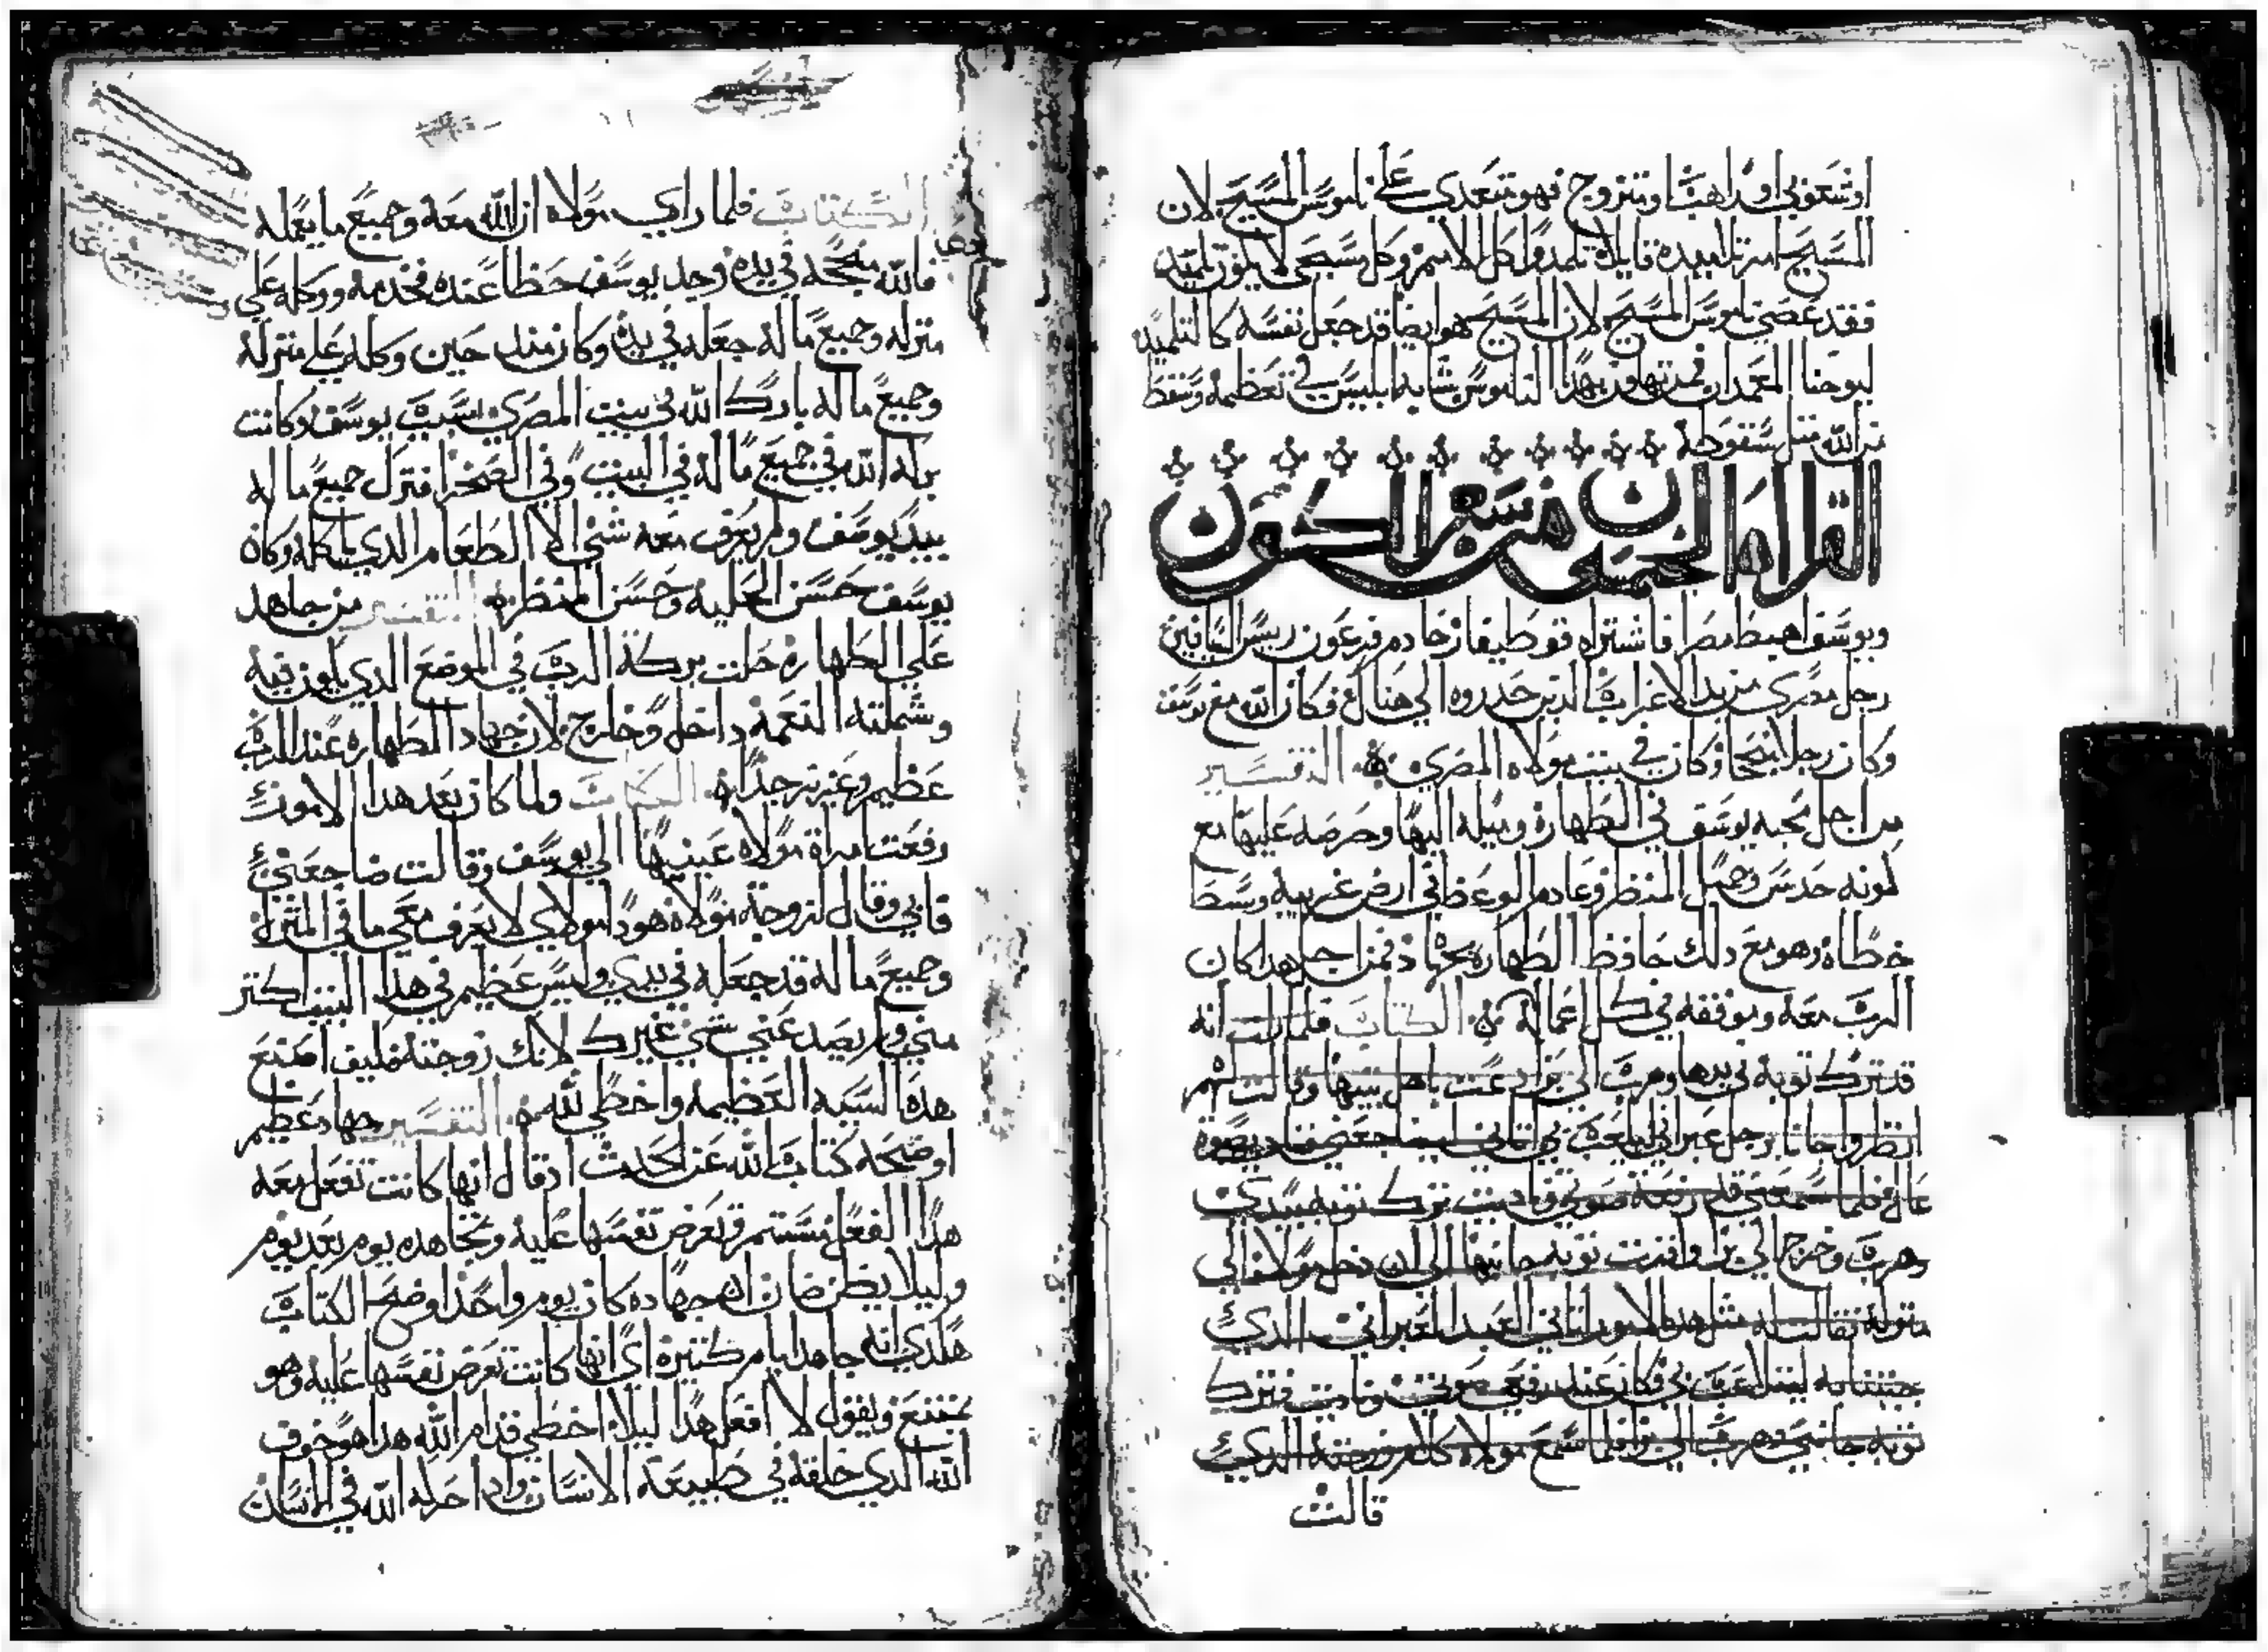 او شعوبي او راهب او متزوج فهو متعدي علي ناموس المسيح لان
المسيح امر تلاميده قايلا تلمدوا كل الامم وكل مسيحى لا يكون تلميد
فقد عصي ناموس المسيح لان المسيح هو ايضا قد جعل نفسه كالتلميد
ليوحنا المعمدان فمن تهاون بهدا الناموس شابه ابليس في تعظمه وسقط
من الله مثل سقوطه
القراه الخمسى ن من سفر الكون
ويوسف اهبط مصر فاشتراه قوطيفار خادم فرعون رييس
رجل مصري من يد الاعراب الدين حدروه الي هناك فكان الله مع يوسف
وكان رجلا منجحا وكان في بيت مولاه المصري التفسير
من اجل محبه يوسف في الطهاره وميله اليها وحرصه عليها مع
كونه حدس وجميل المنظر وعادم الوعظ في ارض غريبه وسط
خطاه وهو مع دلك حافظ الطهاره فمن اجل هدا كان
الرب معه ويوفقه في كل اعماله الكتاب فلما رات انه
قد ترك توبه في يدها وهرب الي برا دعت باهل بيتها وقالت لهم
انظروا جانا برجل عبراني ليلعب بي اتاني ليضاجعني فناديت بصوت
عالي فلما سمعني قد رفعة صوتي وناديت ترك توبه بيدي
وهرب وخرج الي برا واقرت توبه جانبها الي ان دخل مولاه الي
منزله فقالت له مثل هده الامور اتاني العبد العبراني الدي
جيتنا به ليتلاعب بي فكان عند رفع صوتي وناديت فترك
توبه جانبي وهرب الي برا فلما سمع مولاه كلام زوجته الدي
قالت
الكتاب فلما راي مولاه ان الله معه وجميع ما يعمله
فالله ينجحه في يده وجد يوسف حظا عنده فخدمه ووكله علي
منزله وجميع ما له جعله في يده وكان مند حين وكله علي منزله
وجميع ما له بارك الله في بيت المصري بسبب يوسف وكانت
بركه الله في جميع ما له في البيت وفي الصحرا فترك جميع ما له
بيد يوسف ولم يعرف معه شي الا الطعام الدي ياكله وكان
يوسف حسن الحليه وحسن المنظر التفسير من جاهد
علي الطهاره حلت بركة الرب في الموضع الدي يكون فيه
وشملته النعمه داخل وخارج لان جهاد الطهاره عند الرب
عظيم وعزيز جدا الكتاب ولما كان بعد هدا الامور
رفعت امراة مولاه عينيها الي يوسف وقالت ضاجعني
فابي وقال لزوجة مولاه هودا مولاي لا يعرف معي ما في المنزل
وجميع ما له قد جعله في يدي وليس عظيم في هدا البيت اكتر
مني ولم يصد عني شي غيرك لانك زوجته فكيف اصنع
هده السيه العظيمه واخطي لله التفسير جهاد عظيم
اوضحه كتاب الله عن الحدث اد قال انها كانت تفعل معه
هدا الفعل مستمر تعرض نفسها عليه وتجاهده يوم بعد يوم
وليلا يظن ضان ان جهاده كان يوم واحد اوضح الكتاب
هكدي انه جاهد ايام كتيره اي انها كانت تعرض نفسها عليه وهو
يمتنع ويقول لا افعل هدا ليلا اخطي قدام الله هدا هو خوف
الله الدي خلقه في طبيعة الانسان واد الله في الانسان